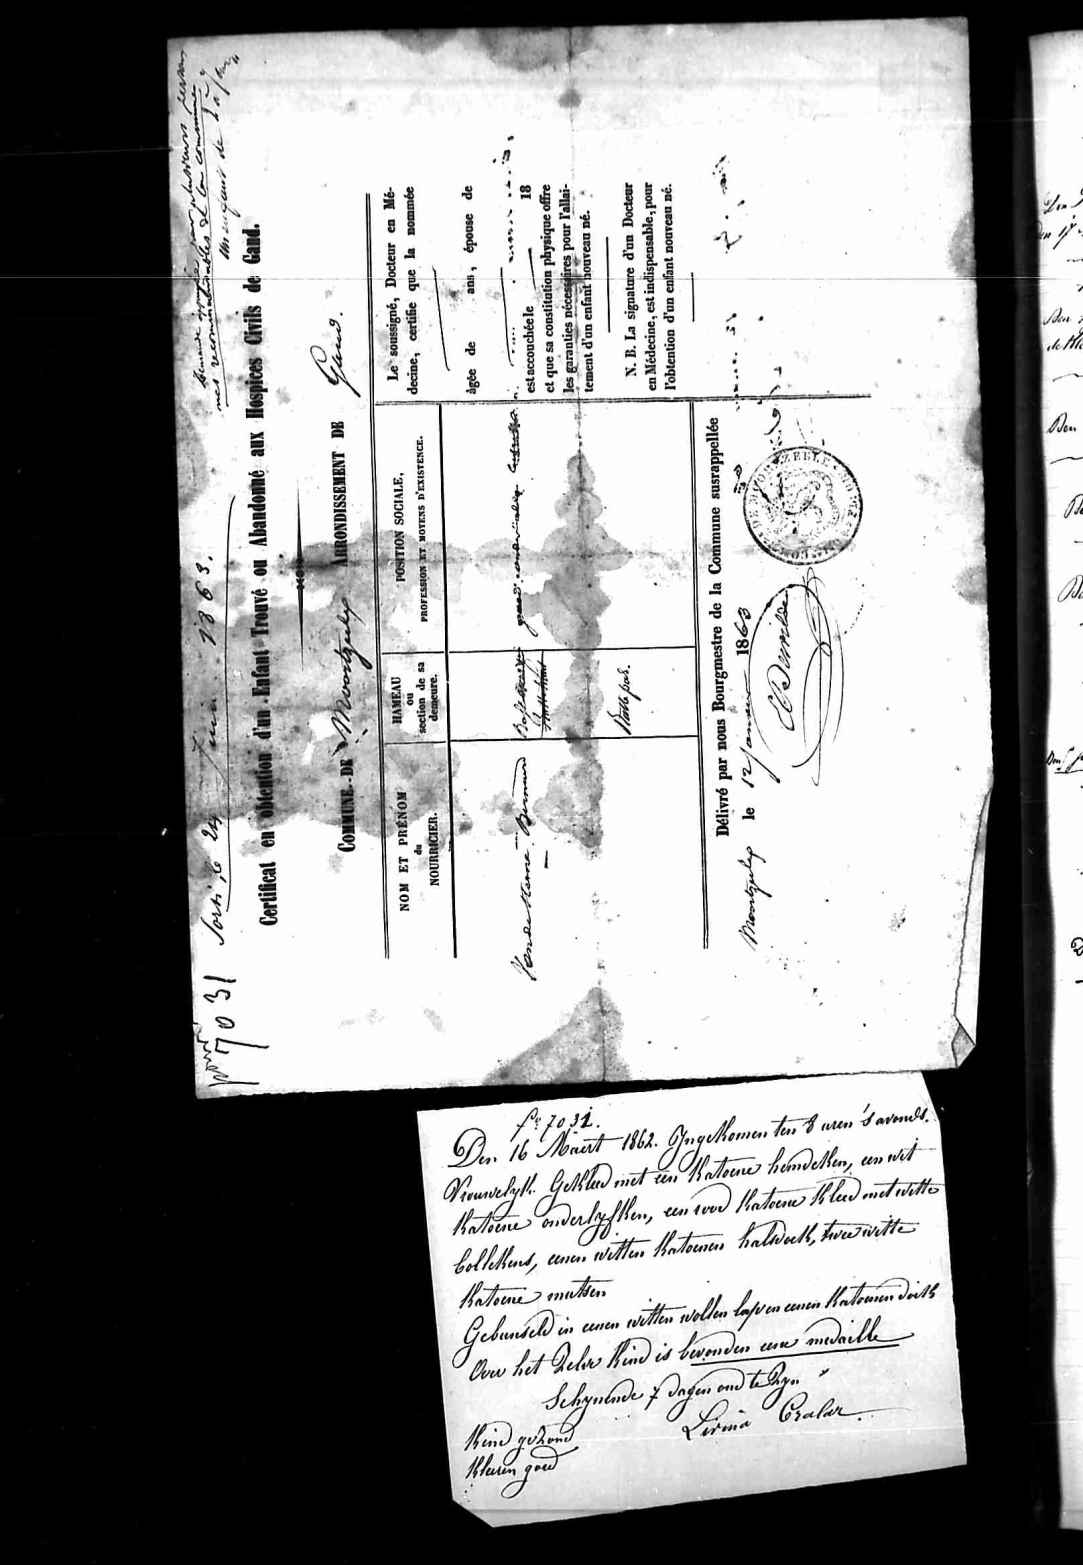 pour
n° 7031
Sorti, le 24 Juin 1863.
Demande appuyée par plusieurs person
nes recommandables de la commune
Certificat en obtention d'un Enfant Trouvé ou Abandonné aux Hospices Civils de Gand.
COMMUNE DE Moortzeele ARRONDISSEMENT DE Gand.
NOM ET PRÉNOM
du
NOURRICIER.
HAMEAU
ou
section de sa
demeure.
POSITION SOCIALE,
PROFESSION ET MOYENS D'EXISTENCE.
Bernard
Le soussigné, Docteur en Mé-
decine, certifie que la nommée
âgée de ans, épouse de
est accouchée le 18
et que sa constitution physique offre
les garanties nécessaires pour l'allai-
tement d'un enfant nouveau né.
N. B. La signature d'un Docteur
en Médecine, est indispensable, pour
l'obtention d'un enfant nouveau né.
Délivré par nous Bourgmestre de la Commune susrappellée
Moortzeele le 12 Janvier 1863
n° 7031.
Den 16 Maert 1862. Ingekomen ten 8 uren 's avonds.
Vrouwelyk. Gekleed met een katoene hemdeken, een wit
katoene onderlyfken, een rood katoene kleed met witte
bollekens, eenen witten katoenen halsdoek, twee witte
katoene mutsen
Gebunseld in eenen witten wollen lap en eenen katoenen doek
Over het zelve kind is bevonden eene medaille
Schynende 7 dagen oud te zyn
Kind gezond
Kleeren goed
Livina